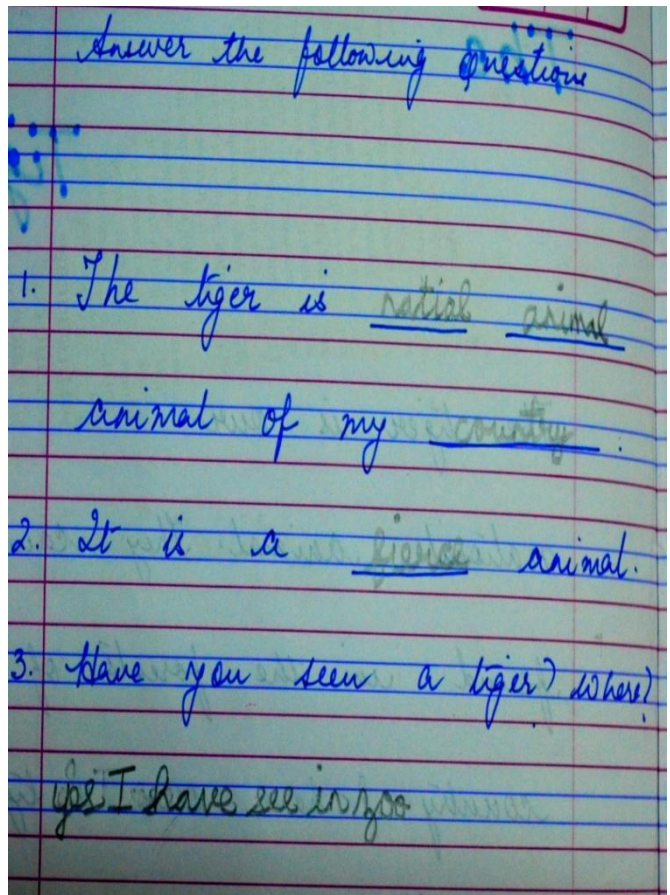 Answer the following Questions
1. The tiger is natial animal
animal of my country.
2. It is a fierce animal.
3. Have you seen a tiger? Where?
yes I have see in zoo